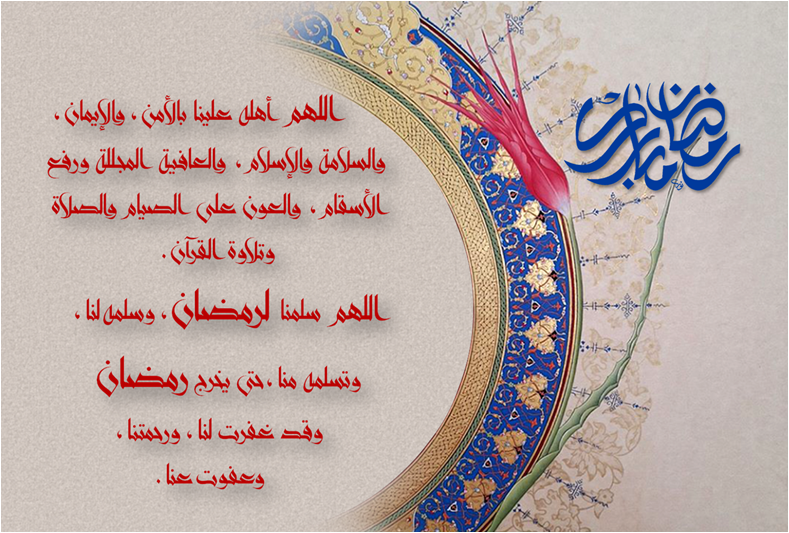 رمضان مبارك
اللهم أهله علينا بالأمن، والإيمان،
والسلامة والإسلام، والعافية المجللة ورفع
الأسقام، والعون على الصيام والصلاة
وتلاوة القرآن.
اللهم سلمنا لرمضان، وسلمه لنا،
وتسلمه منا، حتى يخرج رمضان
وقد غفرت لنا، ورحمتنا،
وعفوت عنا.